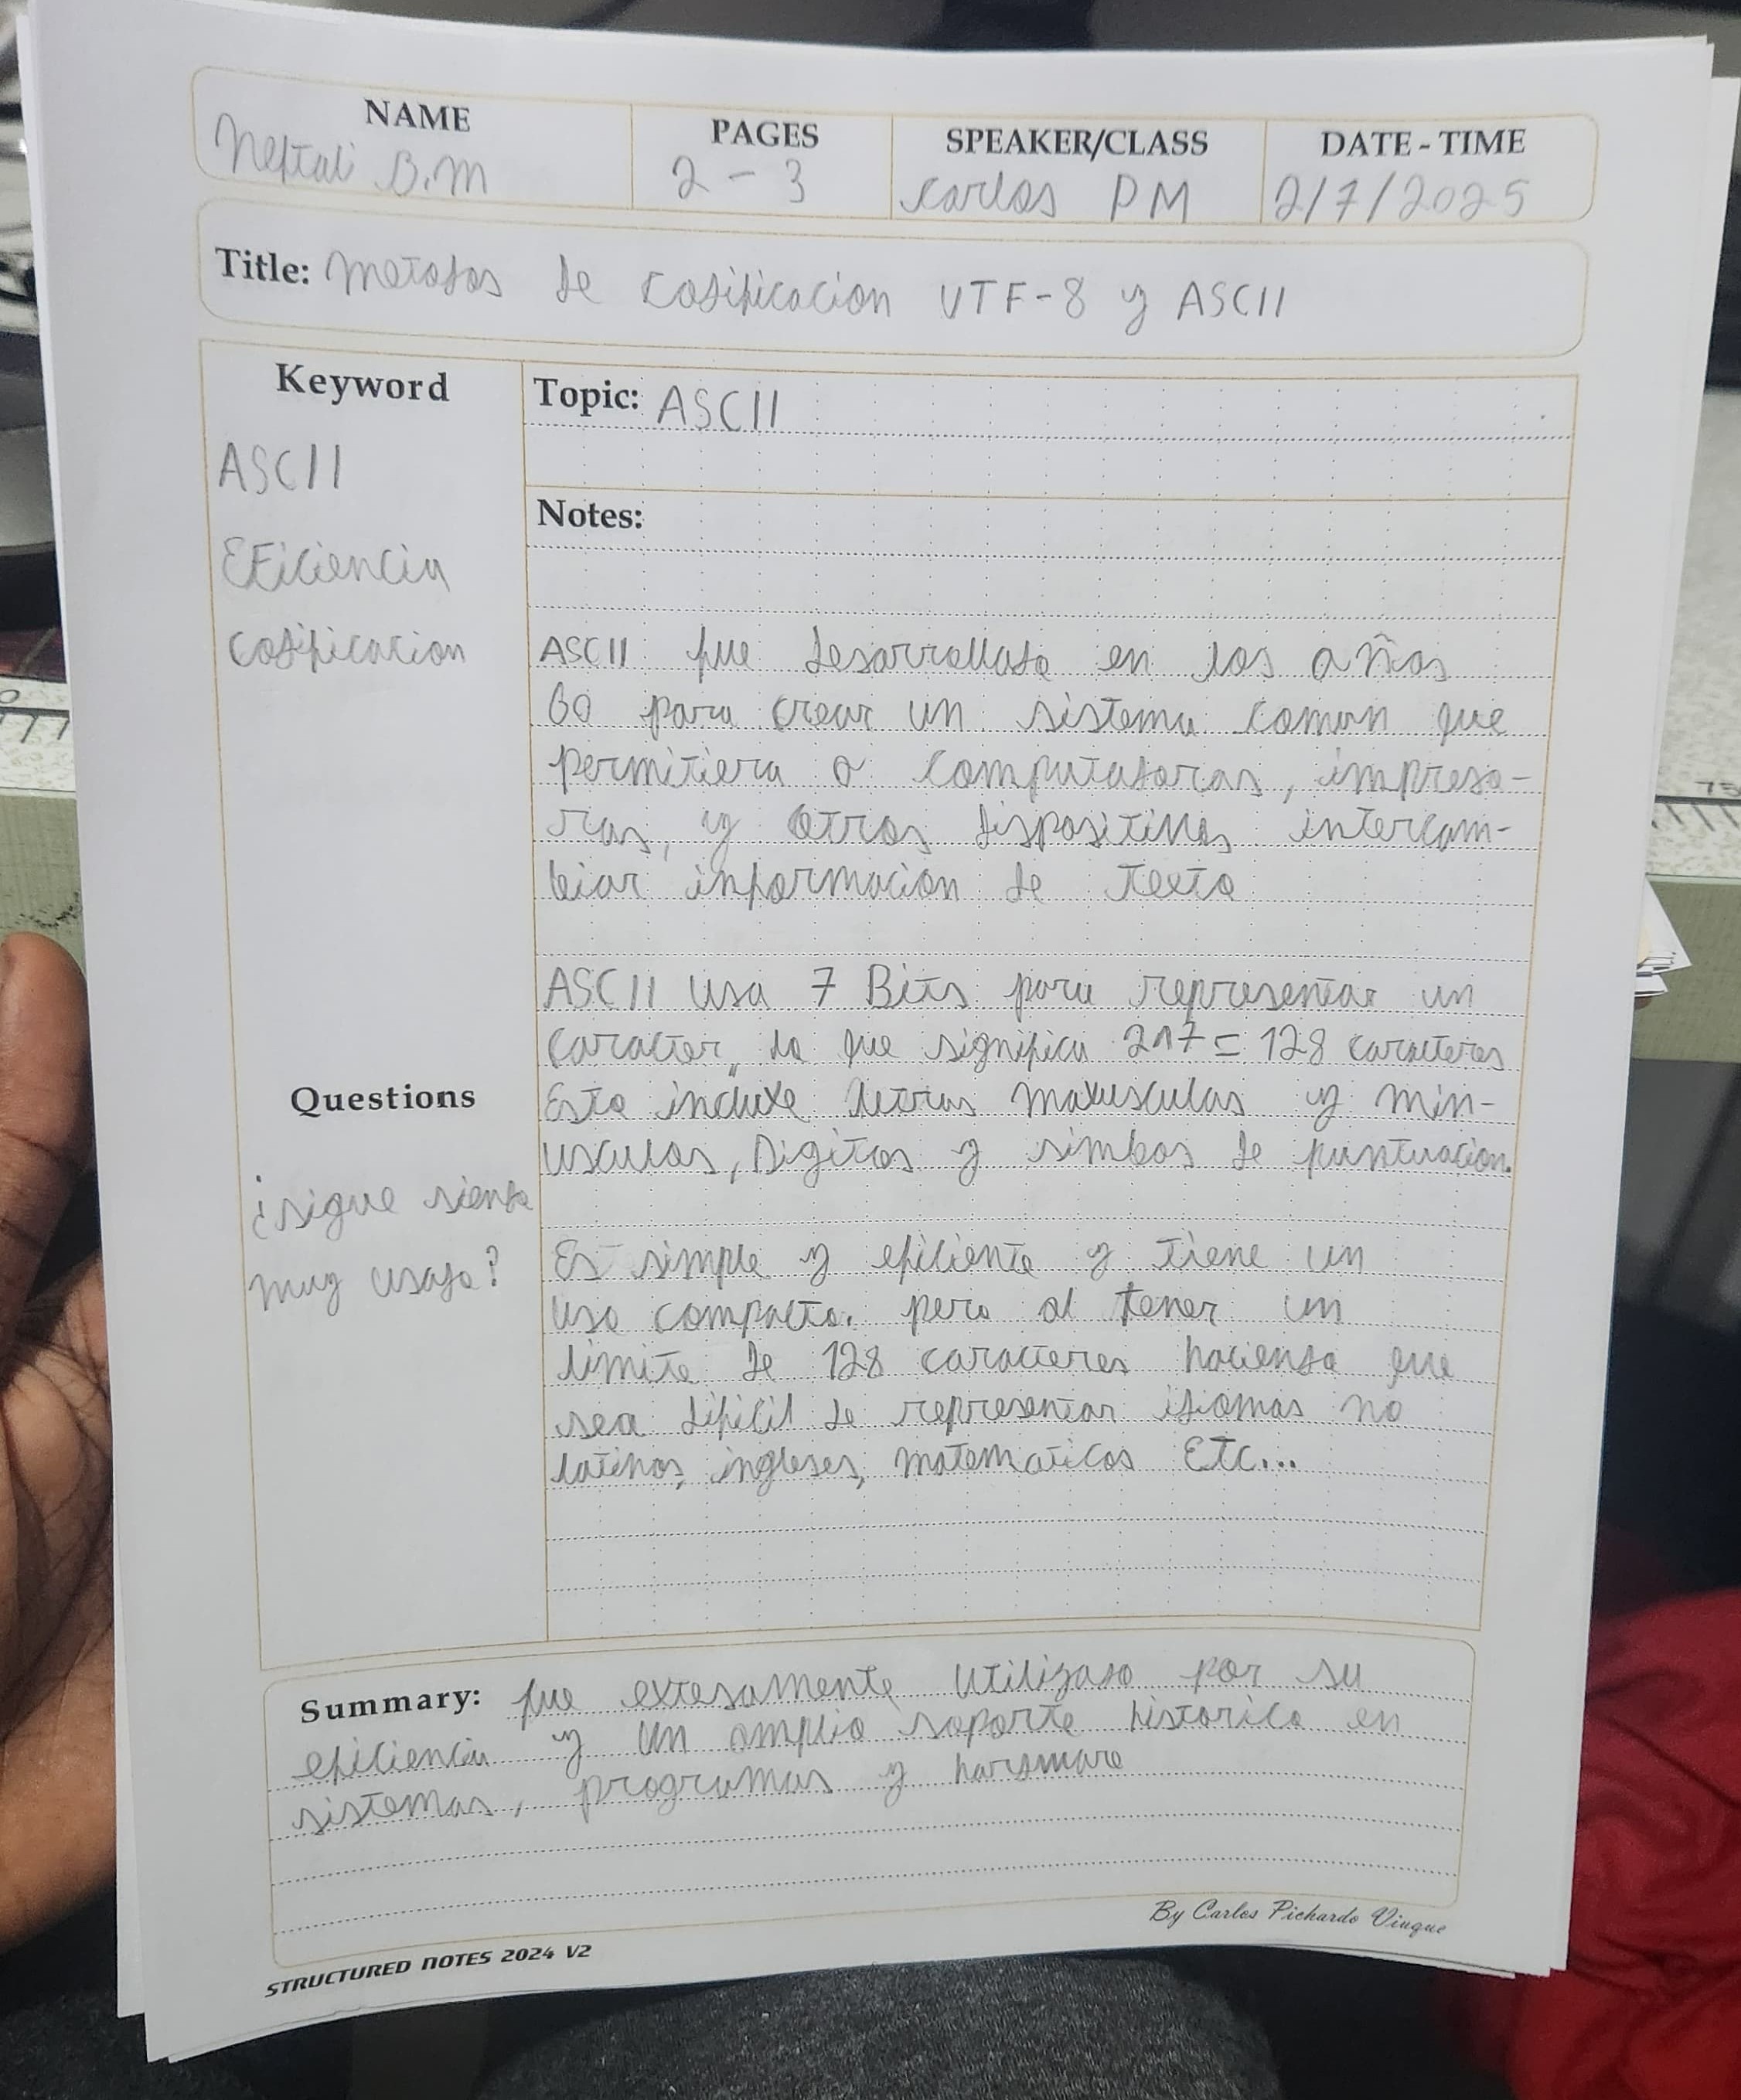 NAME
Neftali B.M
PAGES
2 - 3
SPEAKER/CLASS
Carlos PM
DATE - TIME
2/7/2025
Title: Metodos de Codificacion UTF-8 y ASCII
Keyword
ASCII
Eficiencia
Codificacion
Topic: ASCII
Notes:
ASCII fue desarrollado en los años
60 para crear un sistema comun que
permitiera a computadoras, impreso-
ras, y otros dispositivos intercam-
biar informacion de texto
ASCII usa 7 Bits para representar un
caracter, lo que significa 2^7 = 128 caracteres
Esto incluye letras mayusculas y min-
usculas, Digitos y simbos de puntuacion.
Es simple y eficiente y tiene un
uso compacto. pero al tener un
limite de 128 caracteres haciendo que
sea dificil de representar idiomas no
latinos, ingleses, matematicos Etc...
Questions
¿sigue siendo
muy usado?
Summary: fue extesamente utilizado por su
eficiencia y un amplio soporte historico en
sistemas, programas y hardware
By Carlos Pichardo Viuque
STRUCTURED NOTES 2024 V2